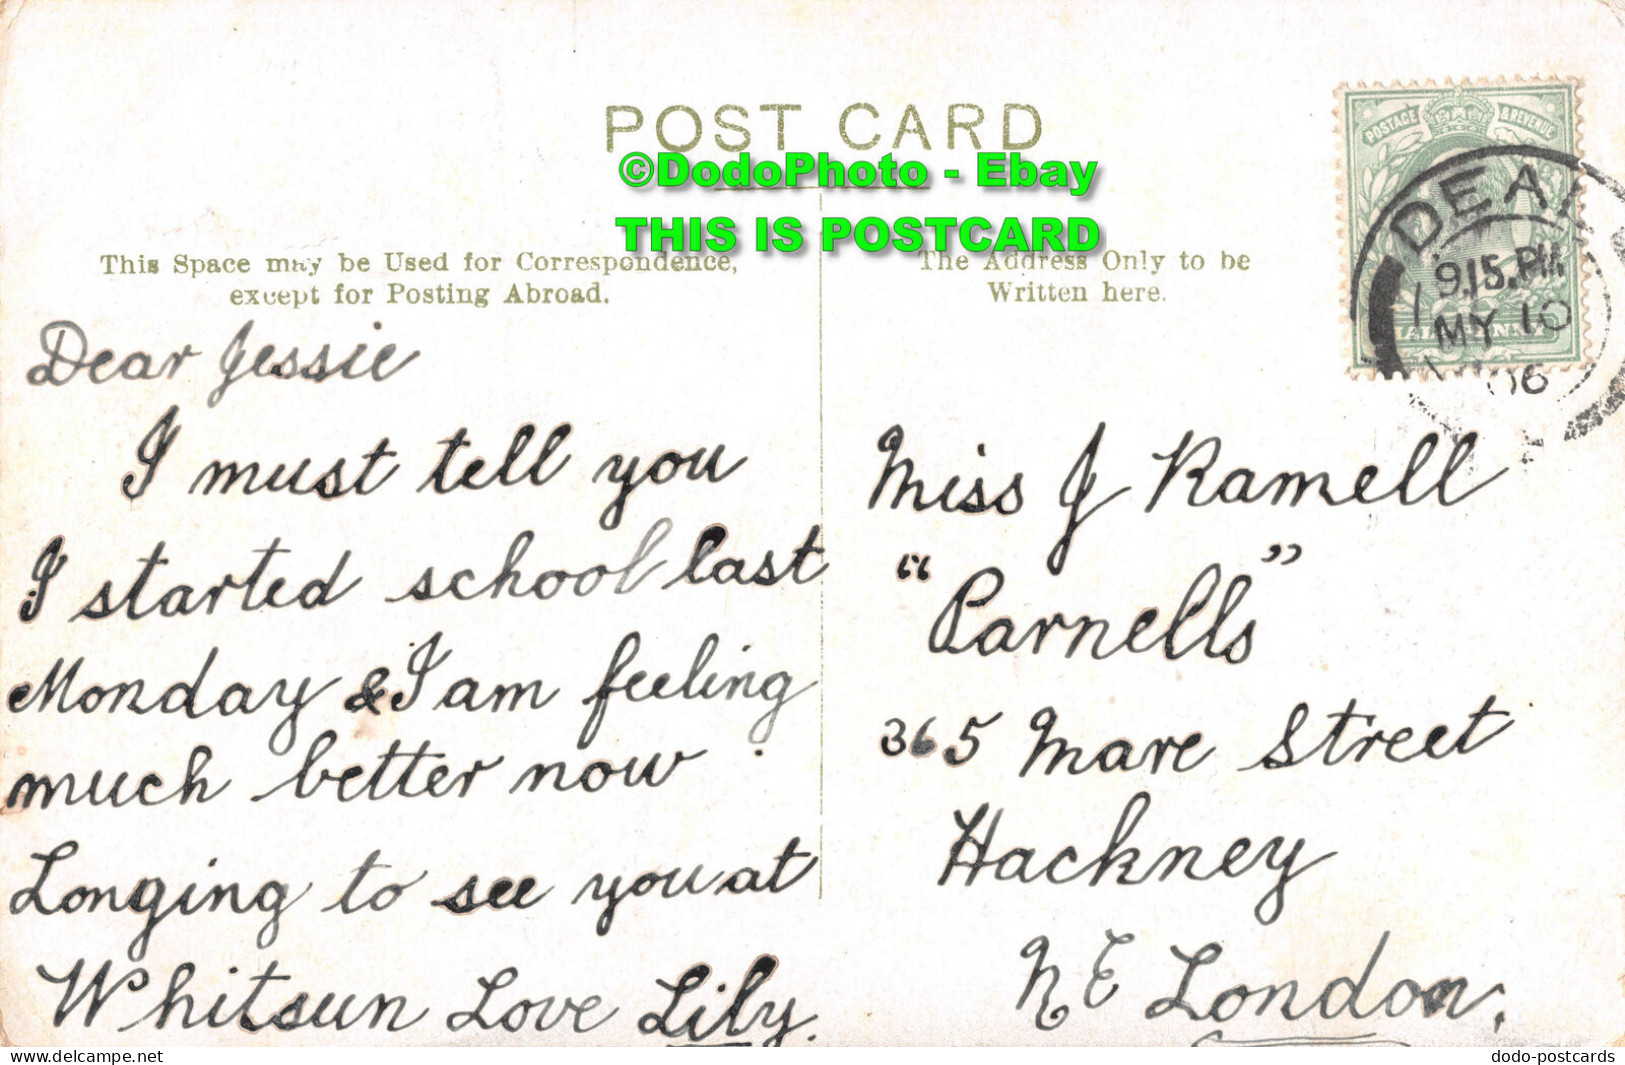 POST CARD
©DodoPhoto - Ebay
THIS IS POSTCARD
This Space may be Used for Correspondence,
except for Posting Abroad.
The Address Only to be
Written here.
POSTAGE & REVENUE
HALFPENNY
DEAL
9.15.PM
MY 10
06
Dear Jessie
I must tell you
I started school last
Monday & I am feeling
much better now.
Longing to see you at
Whitsun Love Lily.
Miss J Ramell
“Parnells”
365 Mare Street
Hackney
N E London.
www.delcampe.net
dodo-postcards